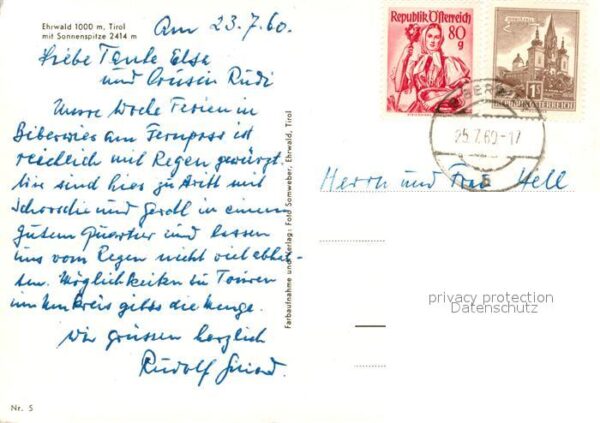 Ehrwald 1000 m, Tirol
mit Sonnenspitze 2414 m
Am 23.7.60.
Liebe Tante Elsa
und Cousin Rudi
Unsre Woche Ferien in
Biberwies am Fernpass ist
reichlich mit Regen gewürzt.
Wir sind hier zu dritt mit
und Gerdl in einem
gutem Quartier und lassen
uns vom Regen nicht viel abhal-
ten. Möglichkeiten zu Touren
im Umkreis gibts die Menge.
Wir grüssen herzlich
Rudolf
Nr. 5
Farbaufnahme und Verlag: Foto Somweber, Ehrwald, Tirol
Republik Österreich
80
g
1S
REPUBLIK ÖSTERREICH
25.7.60-17
Herrn und Frau Hell
privacy protection
Datenschutz